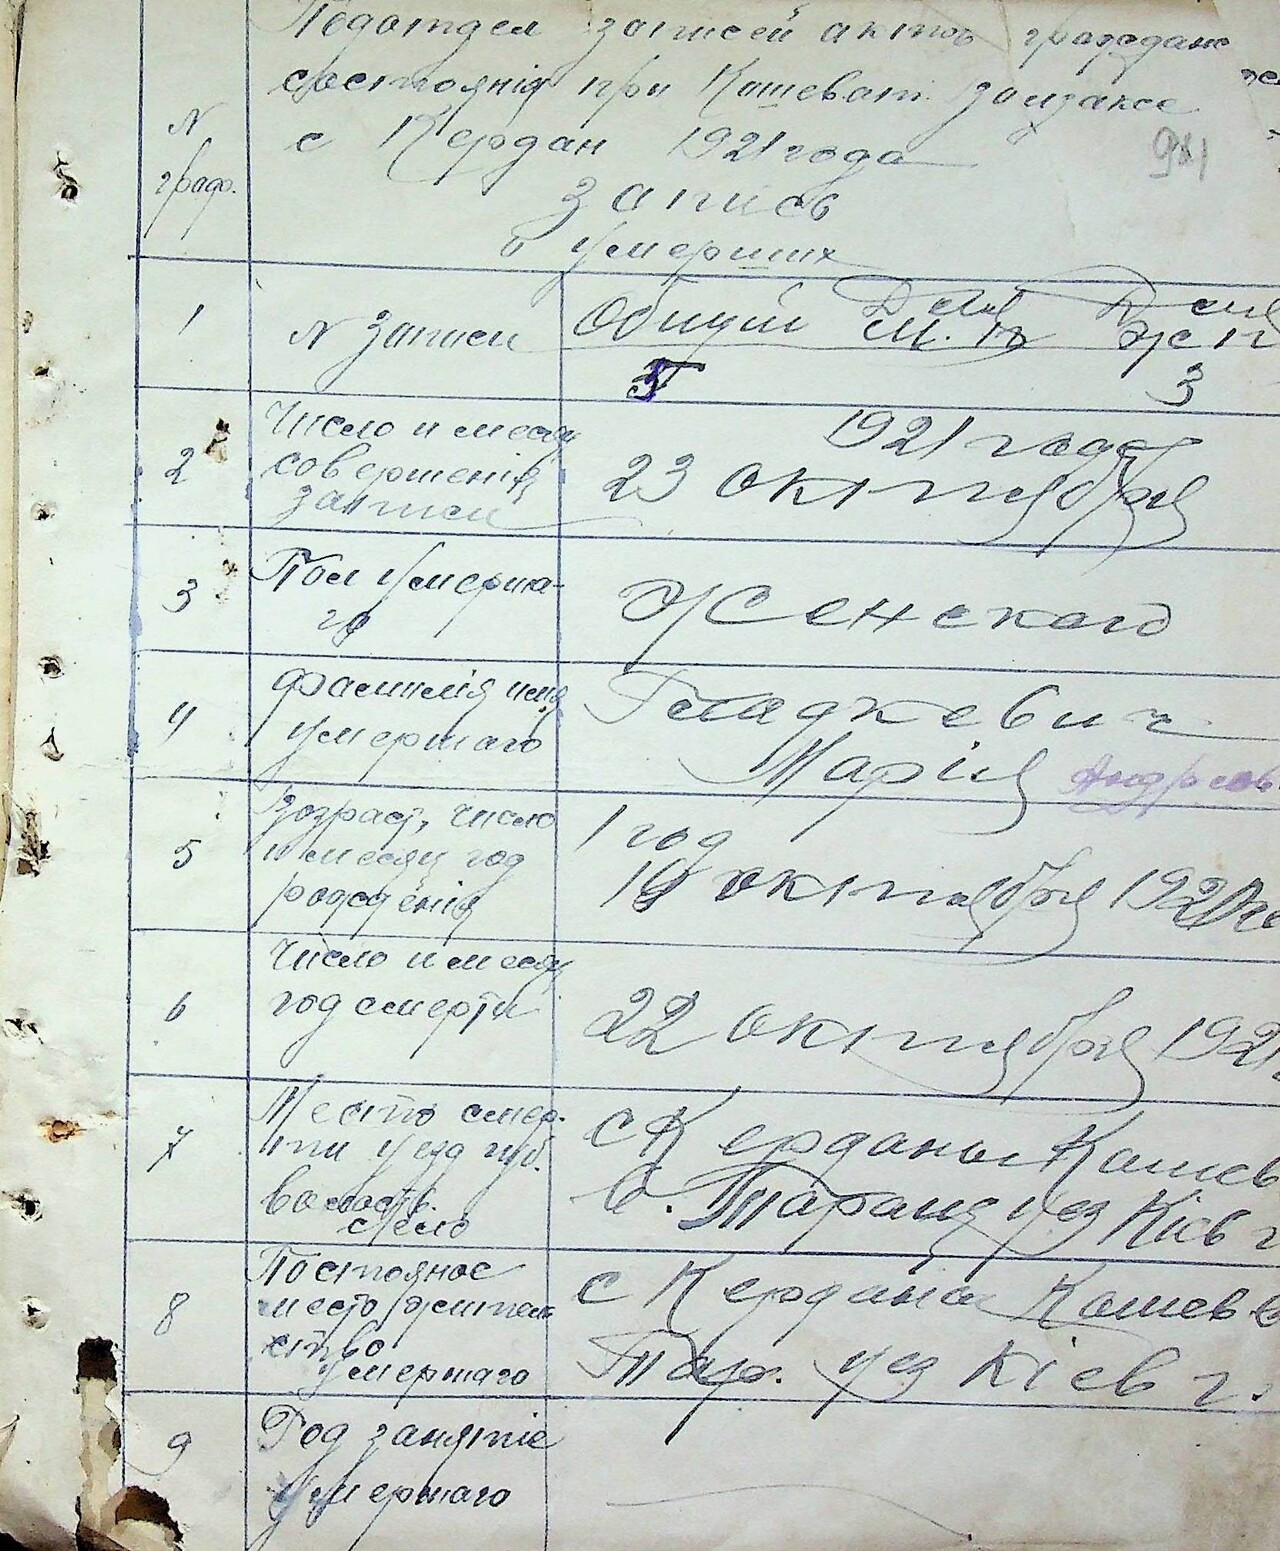 Подотдел записей актов гражданс
состоянія при Кашеват. загзаксе
с Кердан 1921 года
981
N
граф.
Запись
о умерших
1
N Записи
Общий
Для
М. п
Для
Же п
5
3
2
Число и месяц
совершенія
записи
1921 года
23 октября
3
Пол умерша-
го
Женскаго
4
Фамилія имя
умершаго
Гладкевич
Марія Андреев
5
Возраст, число
и месяц год
рожденія
1 год
октября 192
6
Число и месяц
год смерти
22 октября 1921
7
Место смер-
ти уезд губ.
волость
село
с Керданы Кашев
в. Таращ уез Кіев г
8
Постояное
место жител
ство
умершаго
с Керданы Кашев в
Тар. уез Кіев г.
9
Род занятіе
умершаго